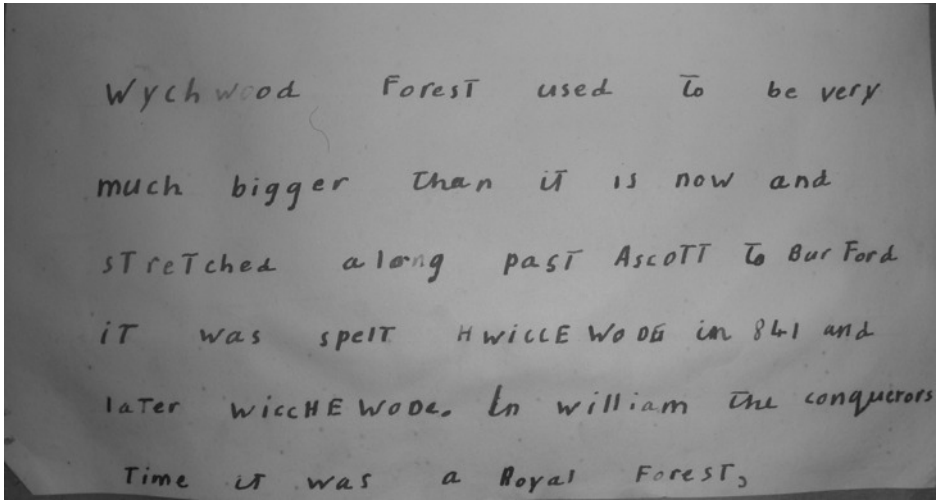 Wychwood Forest used to be very
much bigger than it is now and
stretched along past Ascott to Bur Ford
it was spelt HWICCE WODE in 841 and
later WiccHE WoDe. In william the conquerors
Time it was a Royal Forest,